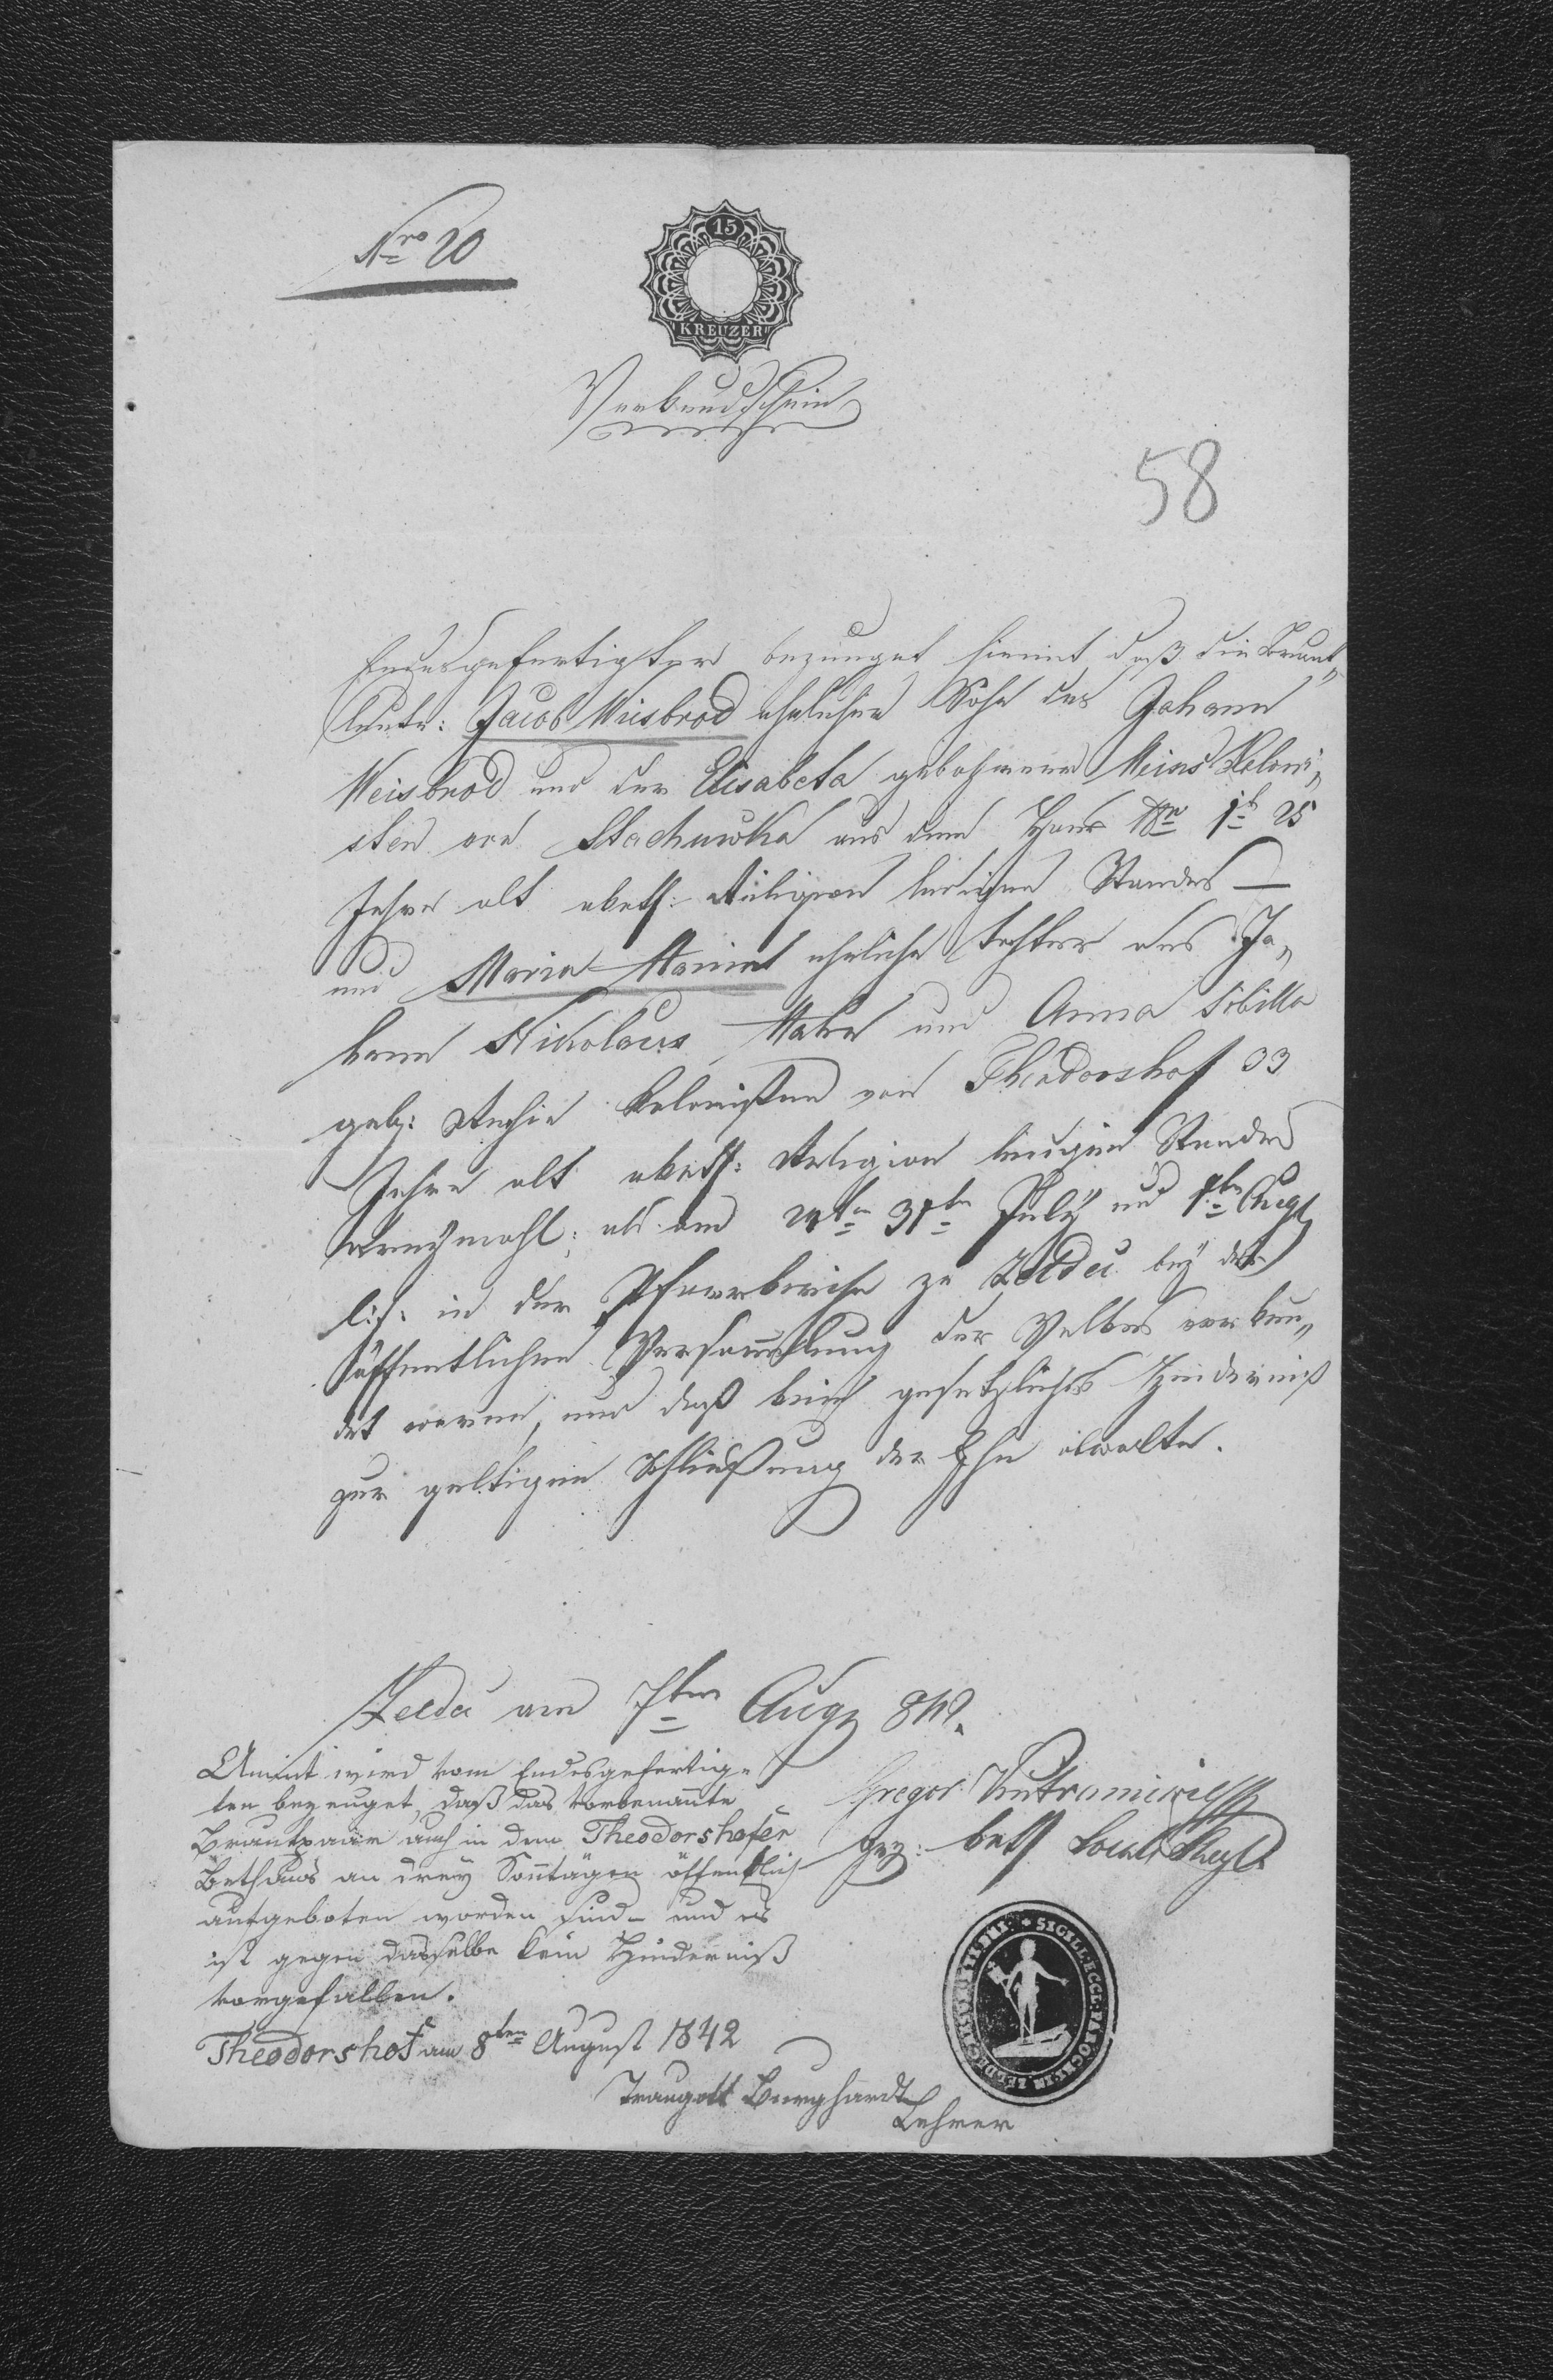 Nro 20
15
KREUZER
Verkundschein
58
Endesgefertigter bezeuget hiemit daß die Braut„
leute: Jacob Wiesbrod ehelicher Sohn des Johann
Weisbrod und der Elisabeta gebohrenen Koloni„
sten von Stachuwka aus dem Haus Nro 25
Jahre alt Religion ledigen Standes —
und Maria eheliche tochter des Jo„
hann Nikolaus und Anna Sibilla
geb: Kolonisten von Theodorshof 33
Jahre alt Religion ledigen Standes
dreymahl: als am 31ten July und Aug
l: J: in der Pfarrkirche zu Zeldec bey der
öffentlichen Versamlung des Volkes verkun„
det waren, und daß kein gesetzliches Hinderniß
zur geltigen Schließung der Ehe obwalte.
Zeldec am 7ten Aug 842.
Amint wird vom Endesgefertig„
ten bezeuget, daß das vorbenannte
Brautpaar auch in dem Theodorshofer
Bethaus an drey Sontägen öffentlich
aufgeboten worden sind – und es
ist gegen dasselbe kein Hinderniß
vorgefallen.
Theodorshof am 8ten August 1842
Traugott Burghardt
Lehrer
Gregor
SIGILL. ECCL. PAROCH. IN